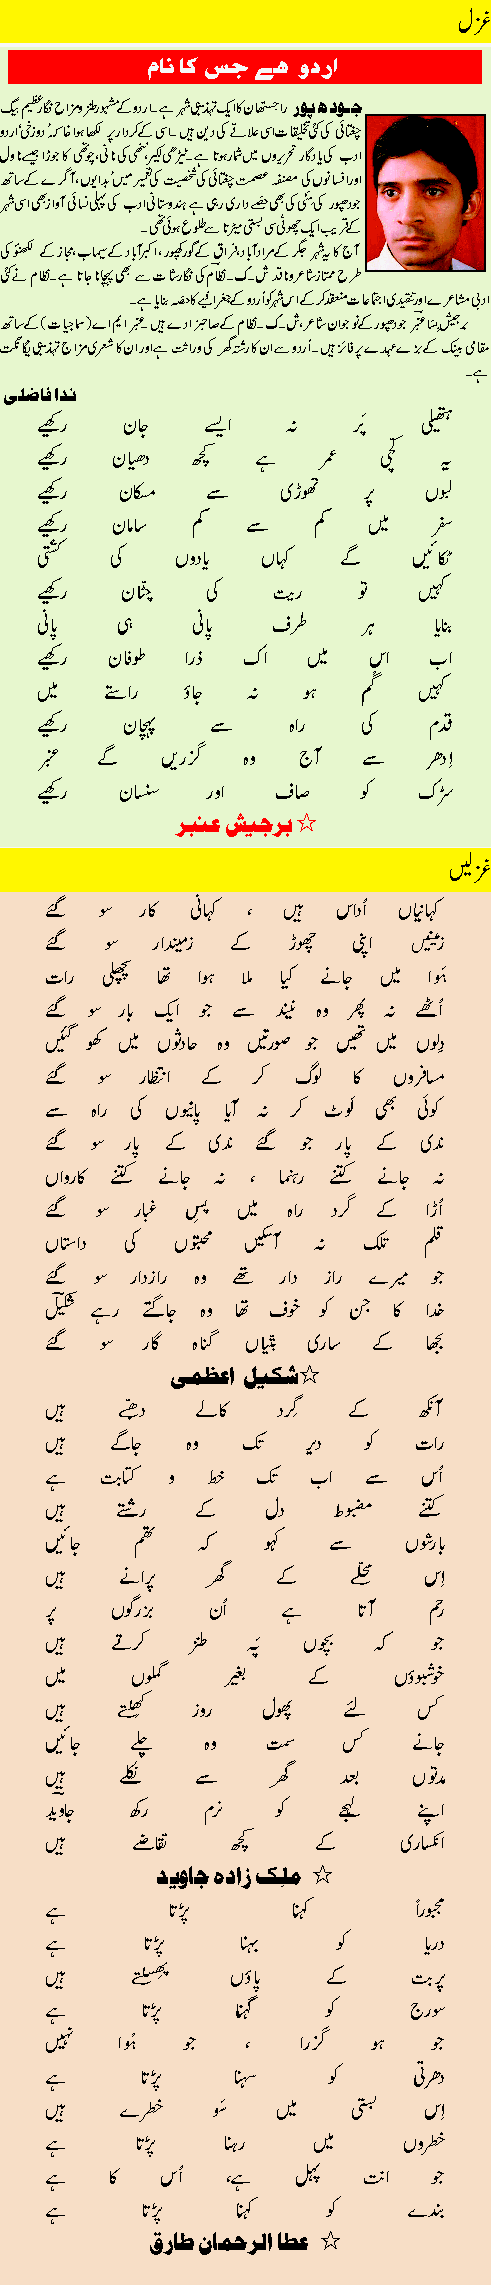 غزل
اردو ھے جس کا نام
جودھپور راجستھان کا ایک تہذیبی شہر ہے۔ اردو کے مشہور طنز و مزاح نگار عظیم بیگ
چغتائی کی کئی تخلیقات اسی علاقے کی دین ہیں۔ اسی کے کردار پر لکھا ہوا خاکہ 'دوزخی' اردو
ادب کی یادگار تحریروں میں شمار ہوتا ہے۔ ٹیڑھی لکیر، ننھی کی نانی، چوتھی کا جوڑا جیسے ناول
اور افسانوں کی مصنفہ عصمت چغتائی کی شخصیت کی تعمیر میں بدایوں، آگرے کے ساتھ
جودھپور کی مٹی کی بھی حصے داری رہی ہے ہندوستانی ادب کی پہلی نسائی آواز بھی اسی شہر
کے قریب ایک چھوٹی سی بستی میڑتا سے طلوع ہوئی تھی۔
آج کا یہ شہر جگر کے مرادآباد، فراق کے گورکھپور، اکبرآباد کے سیماب، مجاز کے لکھنؤ کی
طرح ممتاز شاعر و ناقد ش۔ک۔نظام کی نگارشات سے بھی پہچانا جاتا ہے۔ نظام نے کئی
ادبی مشاعرے اور تنقیدی اجتماعات منعقد کر کے اس شہر کو اردو کے جغرافیے کا حصہ بنایا ہے۔
برجیش عنبر جودھپور کے نوجوان شاعر، ش۔ک۔نظام کے صاحبزادے ہیں۔ عنبر ایم اے (سماجیات) کے ساتھ
مقامی بینک کے بڑے عہدے پر فائز ہیں۔ اردو سے ان کا رشتہ گھر کی وراثت ہے اور ان کا شعری مزاج تہذیبی یگانگت
ہے۔
ندا فاضلی
ہتھیلی پر نہ ایسے جان رکھیے
یہ کچّی عمر ہے کچھ دھیان رکھیے
لبوں پر تھوڑی سے مسکان رکھیے
سفر میں کم سے کم سامان رکھیے
ٹکائیں گے کہاں یادوں کی کشتی
کہیں تو ریت کی چٹّان رکھیے
بنایا ہر طرف پانی ہی پانی
اب اس میں اک ذرا طوفان رکھیے
کہیں گُم ہو نہ جاؤ راستے میں
قدم کی راہ سے پہچان رکھیے
اِدھر سے آج وہ گزریں گے عنبر
سڑک کو صاف اور سنسان رکھیے
☆ برجیش عنبر
غزلیں
کہانیاں اُداس ہیں ، کہانی کار سو گئے
زمینیں اپنی چھوڑ کے زمیندار سو گئے
ہَوا میں جانے کیا ملا ہوا تھا پچھلی رات
اُٹھے نہ پھر وہ نیند سے جو ایک بار سو گئے
دِلوں میں تھیں جو صورتیں وہ حادثوں میں کھو گئیں
مسافروں کا لوگ کر کے انتظار سو گئے
کوئی بھی لَوٹ کر نہ آیا پانیوں کی راہ سے
ندی کے پار جو گئے ندی کے پار سو گئے
نہ جانے کتنے رہنما ، نہ جانے کتنے کارواں
اُڑا کے گرد راہ میں پسِ غبار سو گئے
قلم تلک نہ آسکیں محبتوں کی داستاں
جو میرے راز دار تھے وہ رازدار سو گئے
خدا کا جن کو خوف تھا وہ جاگتے رہے شکیلؔ
بجھا کے ساری بتّیاں گناہ گار سو گئے
☆شکیل اعظمی
آنکھ کے گِرد کالے دھبّے ہیں
رات کو دیر تک وہ جاگے ہیں
اُس سے اب تک خط و کتابت ہے
کتنے مضبوط دل کے رشتے ہیں
بارشوں سے کہو کہ تھم جائیں
اِس محلّے کے گھر پرانے ہیں
رحم آتا ہے اُن بزرگوں پر
جو کہ بچوں پَہ طنز کرتے ہیں
خوشبوؤں کے بغیر گملوں میں
کس لئے پھول روز کھِلتے ہیں
جانے کس سمت وہ چلے جائیں
مدتوں بعد گھر سے نکلے ہیں
اپنے لہجے کو نرم رکھ جاویدؔ
انکساری کے کچھ تقاضے ہیں
☆ ملک زادہ جاوید
مجبوراً کہنا پڑتا ہے
دریا کو بہنا پڑتا ہے
پربت کے پاؤں پھِسلتے ہیں
سورج کو گہنا پڑتا ہے
جو ہو گزرا ، جو ہُوا نہیں
دھرتی کو سہنا پڑتا ہے
اِس بستی میں سَو خطرے ہیں
خطروں میں رہنا پڑتا ہے
جو انت پہل ہے، اُس کا ہے
بندے کو کہنا پڑتا ہے
☆ عطا الرحمان طارق